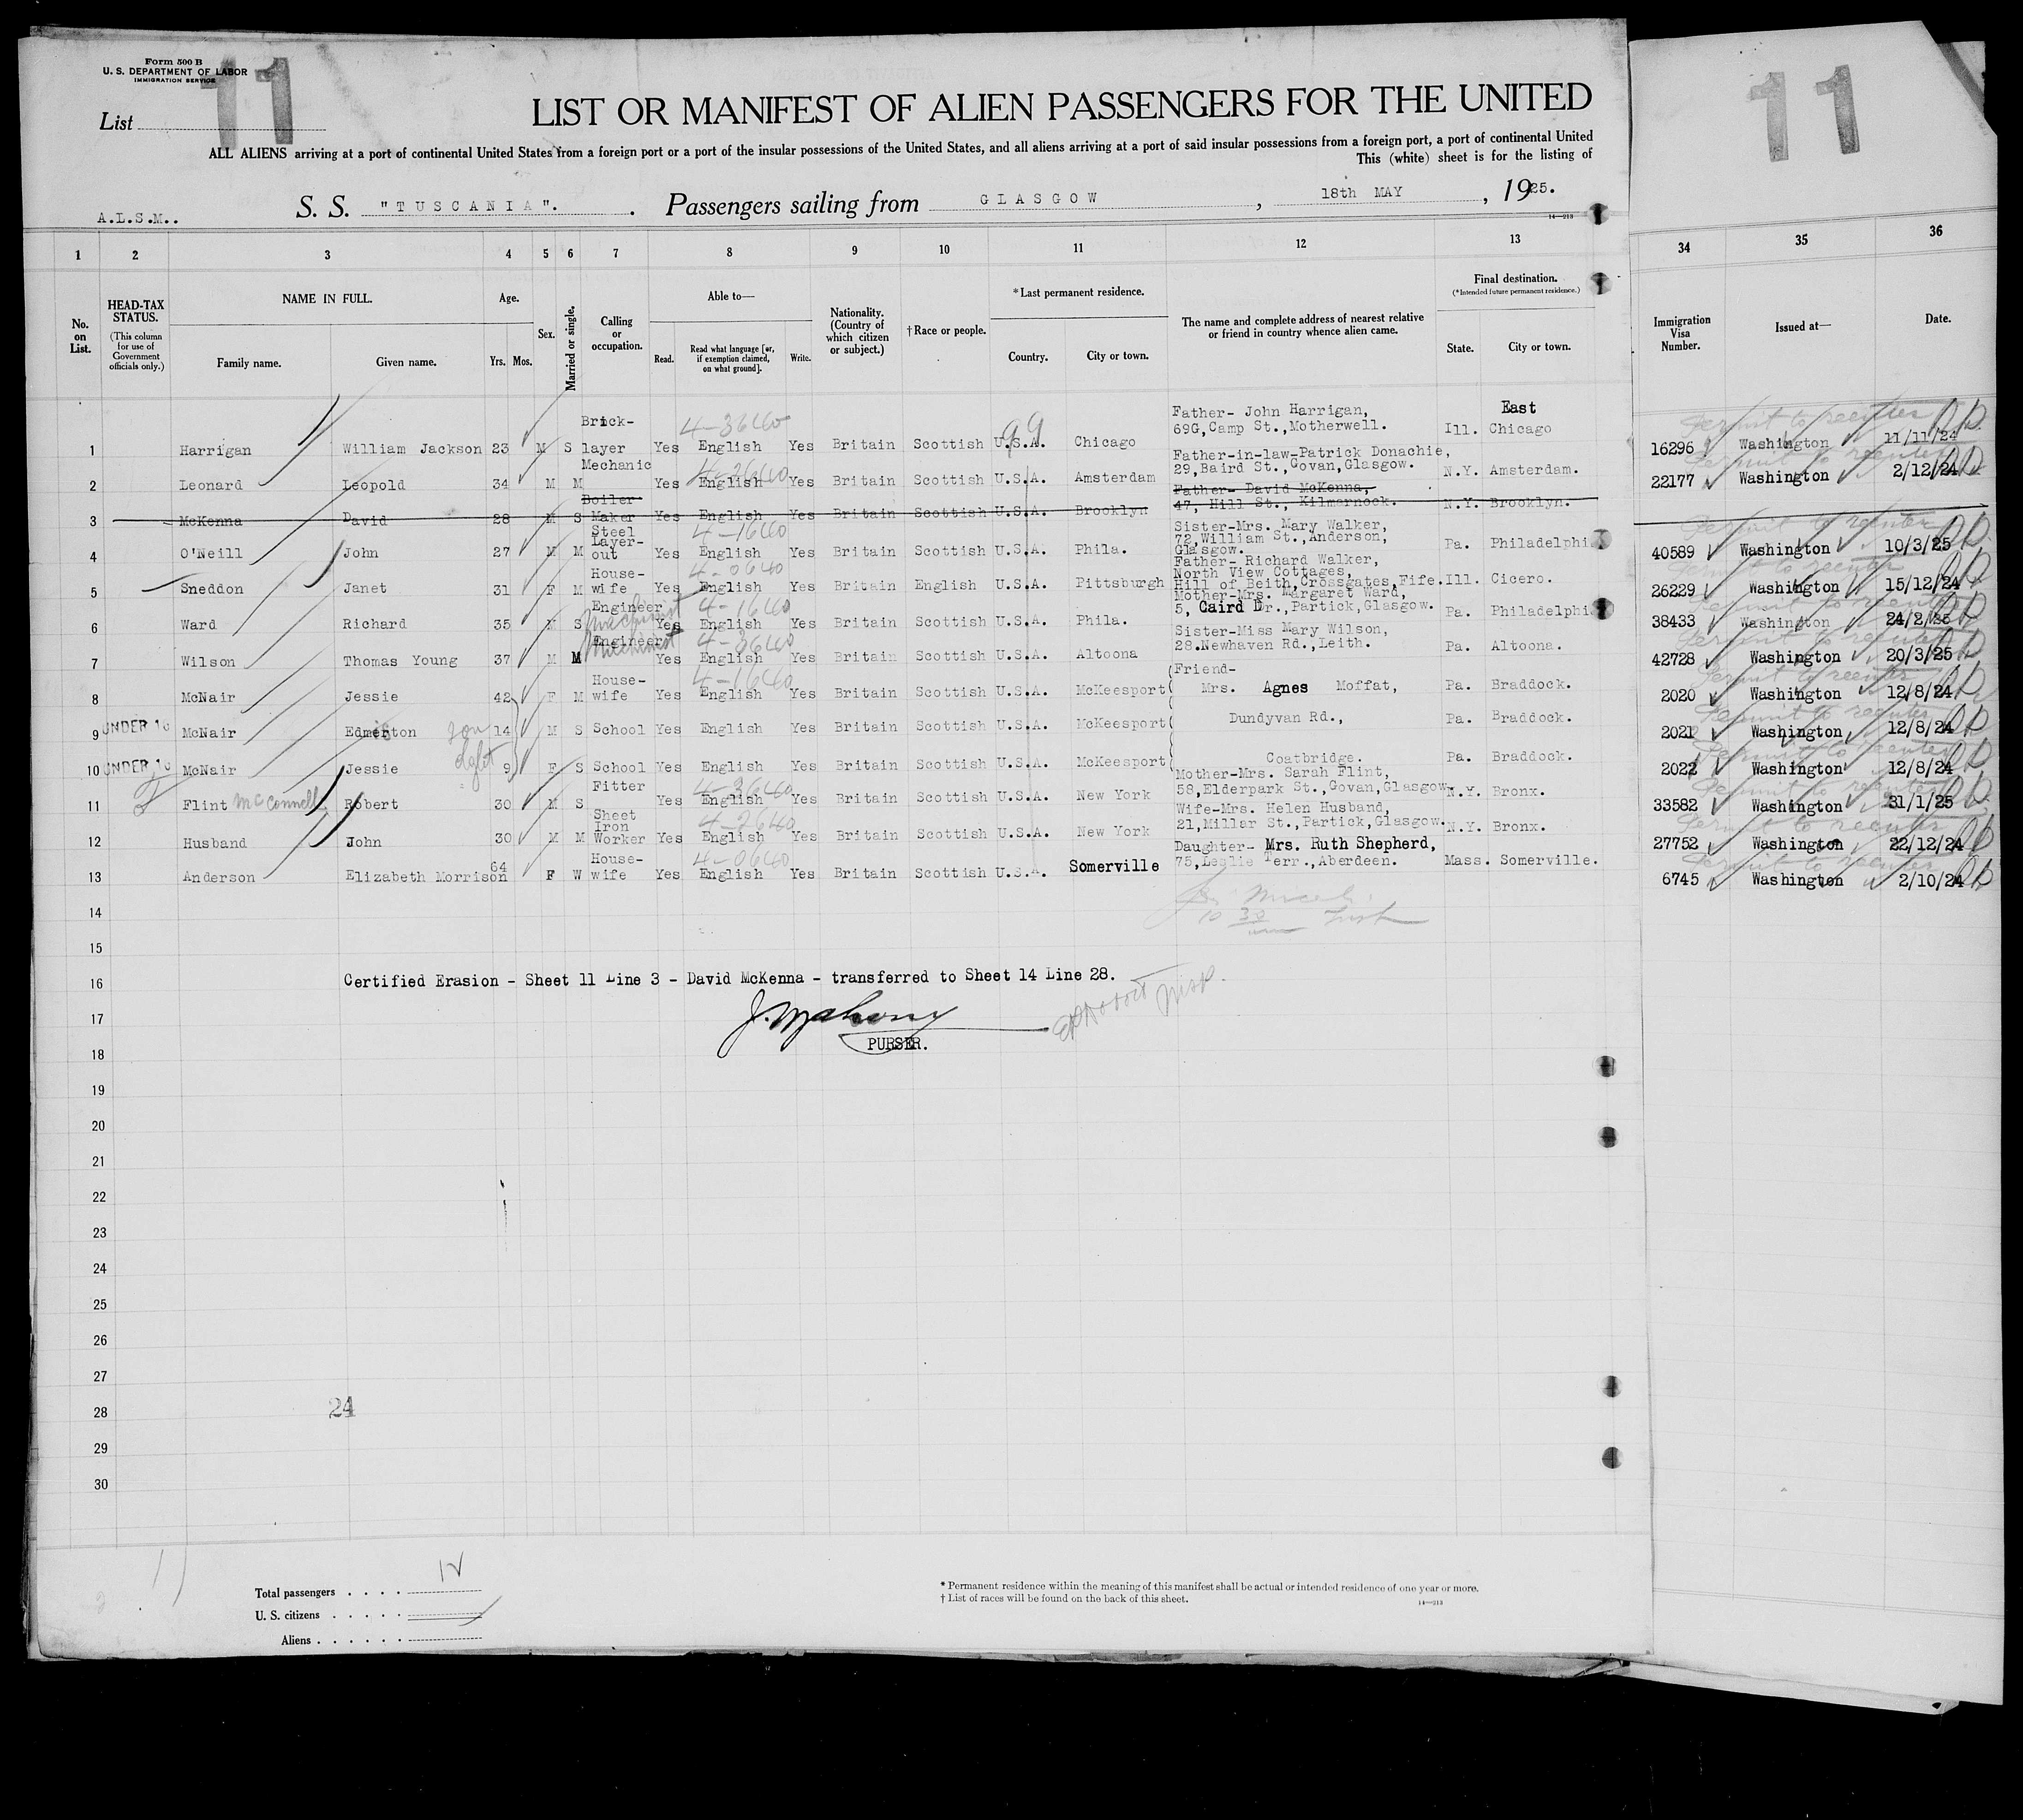 Form 500 B
U. S. DEPARTMENT OF LABOR
IMMIGRATION SERVICE
11
11
List
LIST OR MANIFEST OF ALIEN PASSENGERS FOR THE UNITED
ALL ALIENS arriving at a port of continental United States from a foreign port or a port of the insular possessions of the United States, and all aliens arriving at a port of said insular possessions from a foreign port, a port of continental United
This (white) sheet is for the listing of
A.L.S.M..
S. S. "TUSCANIA". Passengers sailing from GLASGOW, 18th MAY, 1925.
14—213
1 2 3 4 5 6 7 8 9 10 11 12 13 34 35 36
No. on List.
HEAD-TAX STATUS.
(This column for use of Government officials only.)
NAME IN FULL.
Family name. Given name.
Age.
Yrs. Mos.
Sex.
Married or single.
Calling or occupation.
Able to—
Read. Read what language [or, if exemption claimed, on what ground]. Write.
Nationality. (Country of which citizen or subject.)
†Race or people.
*Last permanent residence.
Country. City or town.
The name and complete address of nearest relative or friend in country whence alien came.
Final destination.
(*Intended future permanent residence.)
State. City or town.
Immigration Visa Number.
Issued at—
Date.
1 Harrigan William Jackson 23 M S Brick-layer Yes English 4-3640 Yes Britain Scottish U.S.A. 99 Chicago Father- John Harrigan, 69G,Camp St.,Motherwell. Ill. East Chicago 16296 Permit to reenter Washington 11/11/24
2 Leonard Leopold 34 M M Mechanic Yes English 4-2640 Yes Britain Scottish U.S.A. Amsterdam Father-in-law-Patrick Donachie, 29,Baird St.,Govan,Glasgow. N.Y. Amsterdam. 22177 Permit to reenter Washington 2/12/24
3 McKenna David 28 M S Boiler-Maker Yes English Yes Britain Scottish U.S.A. Brooklyn Father- David McKenna, 47, Hill St., Kilmarnock. N.Y. Brooklyn.
4 O'Neill John 27 M M Steel Layer-out Yes English 4-1640 Yes Britain Scottish U.S.A. Phila. Sister-Mrs. Mary Walker, 72,William St.,Anderson, Glasgow. Pa. Philadelphi 40589 Permit to reenter Washington 10/3/25
5 Sneddon Janet 31 F M House-wife Yes English 4-0640 Yes Britain English U.S.A. Pittsburgh Father- Richard Walker, North View Cottages, Hill of Beith,Crossgates,Fife. Ill. Cicero. 26229 Permit to reenter Washington 15/12/24
6 Ward Richard 35 M S Engineer Machinist Yes English 4-1640 Yes Britain Scottish U.S.A. Phila. Mother-Mrs. Margaret Ward, 5, Caird Dr.,Partick,Glasgow. Pa. Philadelphi 38433 Permit to reenter Washington 24/2/25
7 Wilson Thomas Young 37 M M Engineer Machinist Yes English 4-3640 Yes Britain Scottish U.S.A. Altoona Sister-Miss Mary Wilson, 28.Newhaven Rd.,Leith. Pa. Altoona. 42728 Permit to reenter Washington 20/3/25
8 McNair Jessie 42 F M House-wife Yes English 4-1640 Yes Britain Scottish U.S.A. McKeesport Friend- Mrs. Agnes Moffat, Pa. Braddock. 2020 Permit to reenter Washington 12/8/24
9 UNDER 16 McNair Edmerton son 14 M S School Yes English Yes Britain Scottish U.S.A. McKeesport Dundyvan Rd., Pa. Braddock. 2021 Permit to reenter Washington 12/8/24
10 UNDER 16 McNair Jessie 9 F S School Yes English Yes Britain Scottish U.S.A. McKeesport Coatbridge. Pa. Braddock. 2022 Permit to reenter Washington 12/8/24
11 Flint McConnell Robert 30 M S Fitter Yes English 4-3640 Yes Britain Scottish U.S.A. New York Mother-Mrs. Sarah Flint, 58,Elderpark St.,Govan,Glasgow. N.Y. Bronx. 33582 Permit to reenter Washington 31/1/25
12 Husband John 30 M M Sheet Iron Worker Yes English 4-2640 Yes Britain Scottish U.S.A. New York Wife-Mrs. Helen Husband, 21,Millar St.,Partick,Glasgow. N.Y. Bronx. 27752 Permit to reenter Washington 22/12/24
13 Anderson Elizabeth Morrison 64 F W House-wife Yes English 4-0640 Yes Britain Scottish U.S.A. Somerville Daughter- Mrs. Ruth Shepherd, 75,Leslie Terr.,Aberdeen. Mass. Somerville. 6745 Permit to reenter Washington 2/10/24
14
15
16 Certified Erasion - Sheet 11 Line 3 - David McKenna - transferred to Sheet 14 Line 28.
17
18 PURSER.
19
20
21
22
23
24
25
26
27
28 24
29
30
Total passengers . . . . 12
U. S. citizens . . . . .
Aliens . . . . . .
* Permanent residence within the meaning of this manifest shall be actual or intended residence of one year or more.
† List of races will be found on the back of this sheet.
14—213